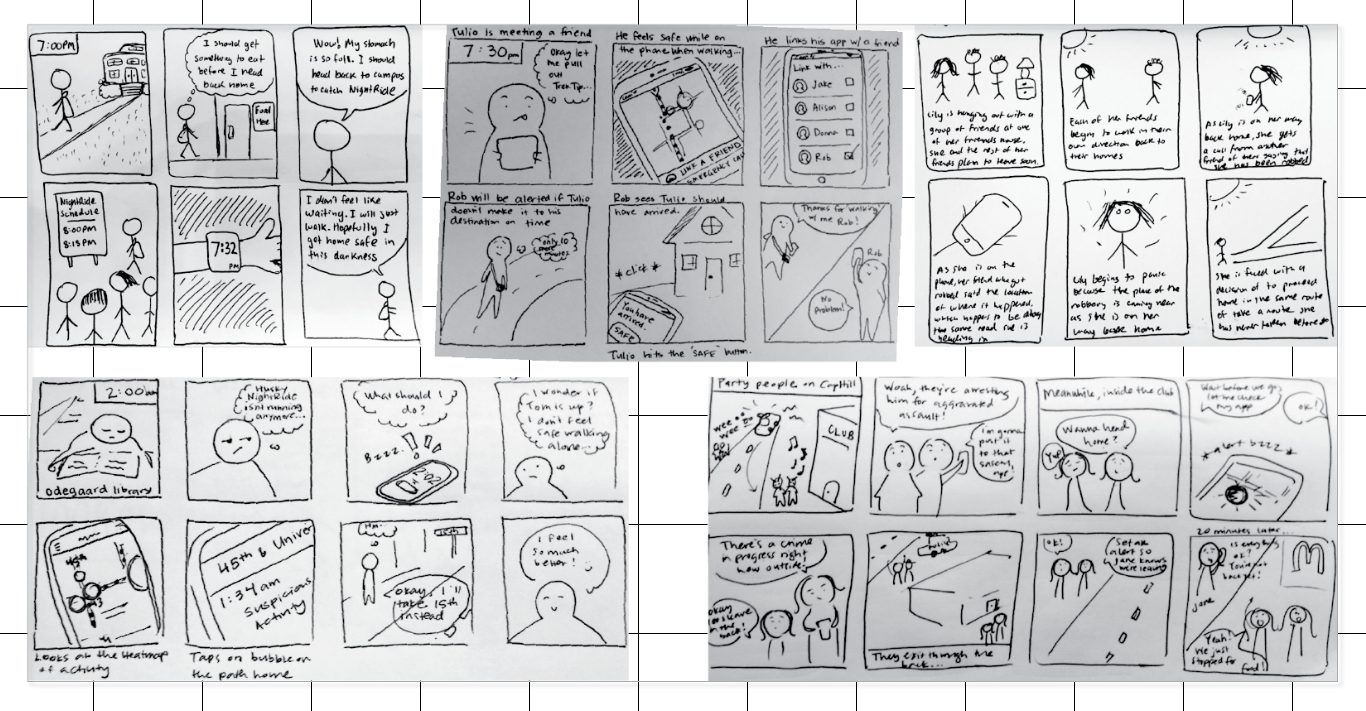 7:00PM
I should get
something to eat
before I head
back home
Food
Here
Wow! My stomach
is so full. I should
head back to campus
to catch NightRide
NightRide
Schedule
8:00PM
8:15PM
7:32
PM
I don't feel like
waiting. I will just
walk. Hopefully I
get home safe in
this darkness
Tulio is meeting a friend
7:30pm
Okay let
me pull
out
TrekTip...
He feels safe while on
the phone when walking...
LINK A FRIEND
EMERGENCY CALL
He links his app w/ a friend
Link with...
Jake
Alison
Donna
Rob
Rob will be alerted if Tulio
doesn't make it to his
destination on time
only 10
more
minutes
Rob sees Tulio should
have arrived.
*click*
You have
arrived.
SAFE
Tulio hits the "SAFE" button.
Thanks for walking
w/ me Rob!
Rob
No
Problem!
Lily is hanging out with a
group of friends at one
of her friends house,
she and the rest of her
friends plan to leave soon.
Each of her friends
begin to walk in their
own direction back to
their homes
As Lily is on her way
back home, she gets
a call from another
friend of hers saying that
she has been robbed
As she is on the
phone, her friend who got
robbed said the location
of where it happened,
which happens to be along
the same road she is
heading in
Lily begins to panic
because the place of the
robbery is coming near
as she is on her
way back home
She is faced with a
decision of to proceed
home in the same route
of take a route she
has never taken before
2:00am
Odegaard library
Husky
NightRide
isnt running
anymore...
What should I
do?
Bzzz!
2:02
I wonder if
Tom is up?
I don't feel
safe walking
alone...
45th
Looks at the Heatmap
of activity
45th & Univer
1:34am
Suspicious
Activity
Taps on bubble on
the path home
Hm..
15th
Okay, I'll
take 15th
instead
I feel
so much
better!
Party people on CapHill
wee
wee
CLUB
Woah, they're arresting
him for aggravated
assault!
I'm gonna
post it
to that
safety
app
Meanwhile, inside the club
Wanna head
home?
Yup
Wait before we go
let me check
my app
OK!
*alert bzzz*
There's a crime
in progress right
now outside.
Okay
let's leave
in the
back!
They exit through the
back...
OK!
Set an
alert so
Jane knows
we're leaving
20 minutes later...
Is everything
ok?
You're not
back yet!
Jane
Yeah!
We just
stopped for
food!